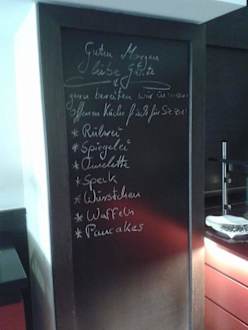 Guten Morgen
liebe Gäste
gern bereiten wir in unserer
offenen Küche frisch für Sie zu:
* Rührei
* Spiegelei
* Omelette
* Speck
* Würstchen
* Waffeln
* Pancakes